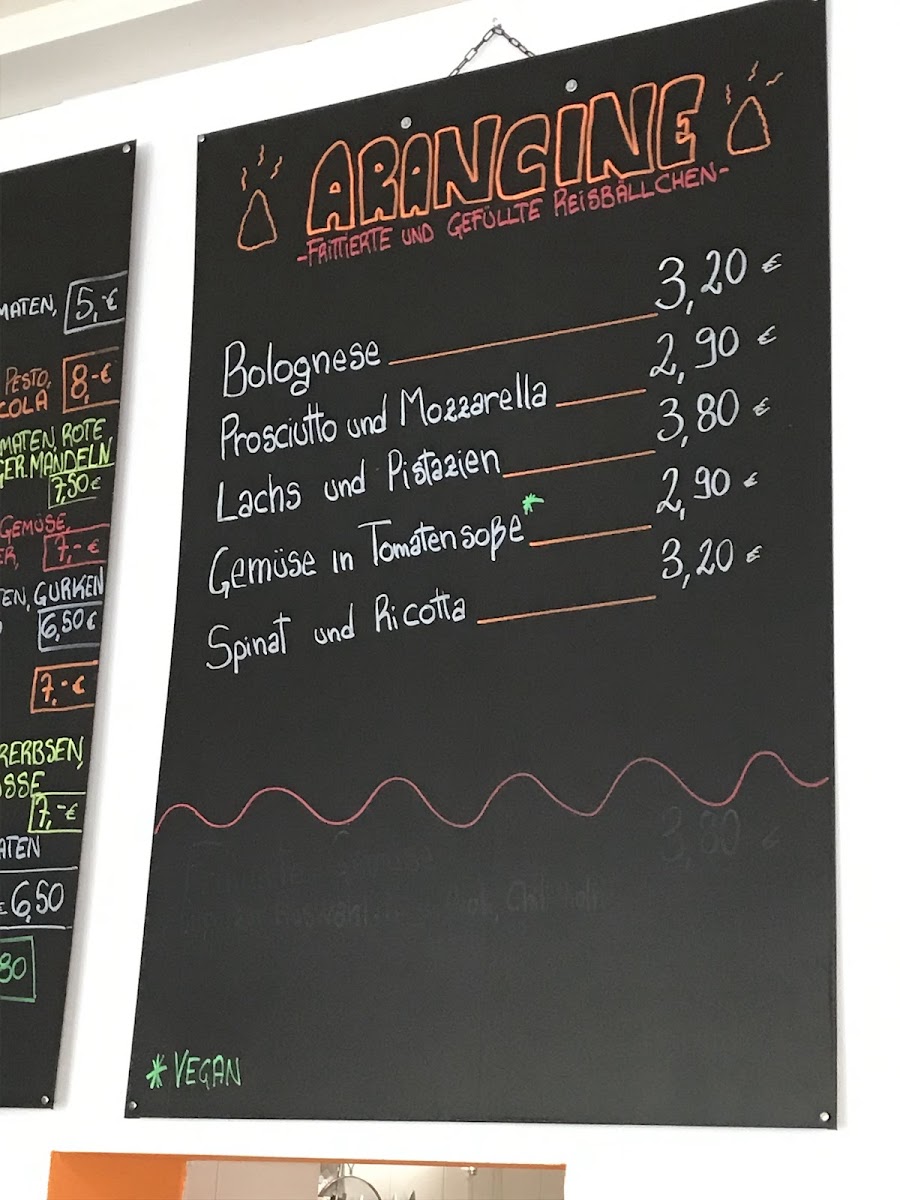 ARANCINE
-FRITTIERTE UND GEFÜLLTE REISBÄLLCHEN-
Bolognese 3,20 €
Prosciutto und Mozzarella 2,90 €
Lachs und Pistazien 3,80 €
Gemüse in Tomatensoße* 2,90 €
Spinat und Ricotta 3,20 €
3,80 €
* VEGAN
MATEN, 5,-€
PESTO, 8,-€
COLA
MATEN, ROTE
GER. MANDELN
7,50 €
GEMÜSE,
ER, 7,-€
TEN, GURKEN
6,50 €
7,-€
RERBSEN,
SSE
7,-€
ATEN
€ 6,50
80